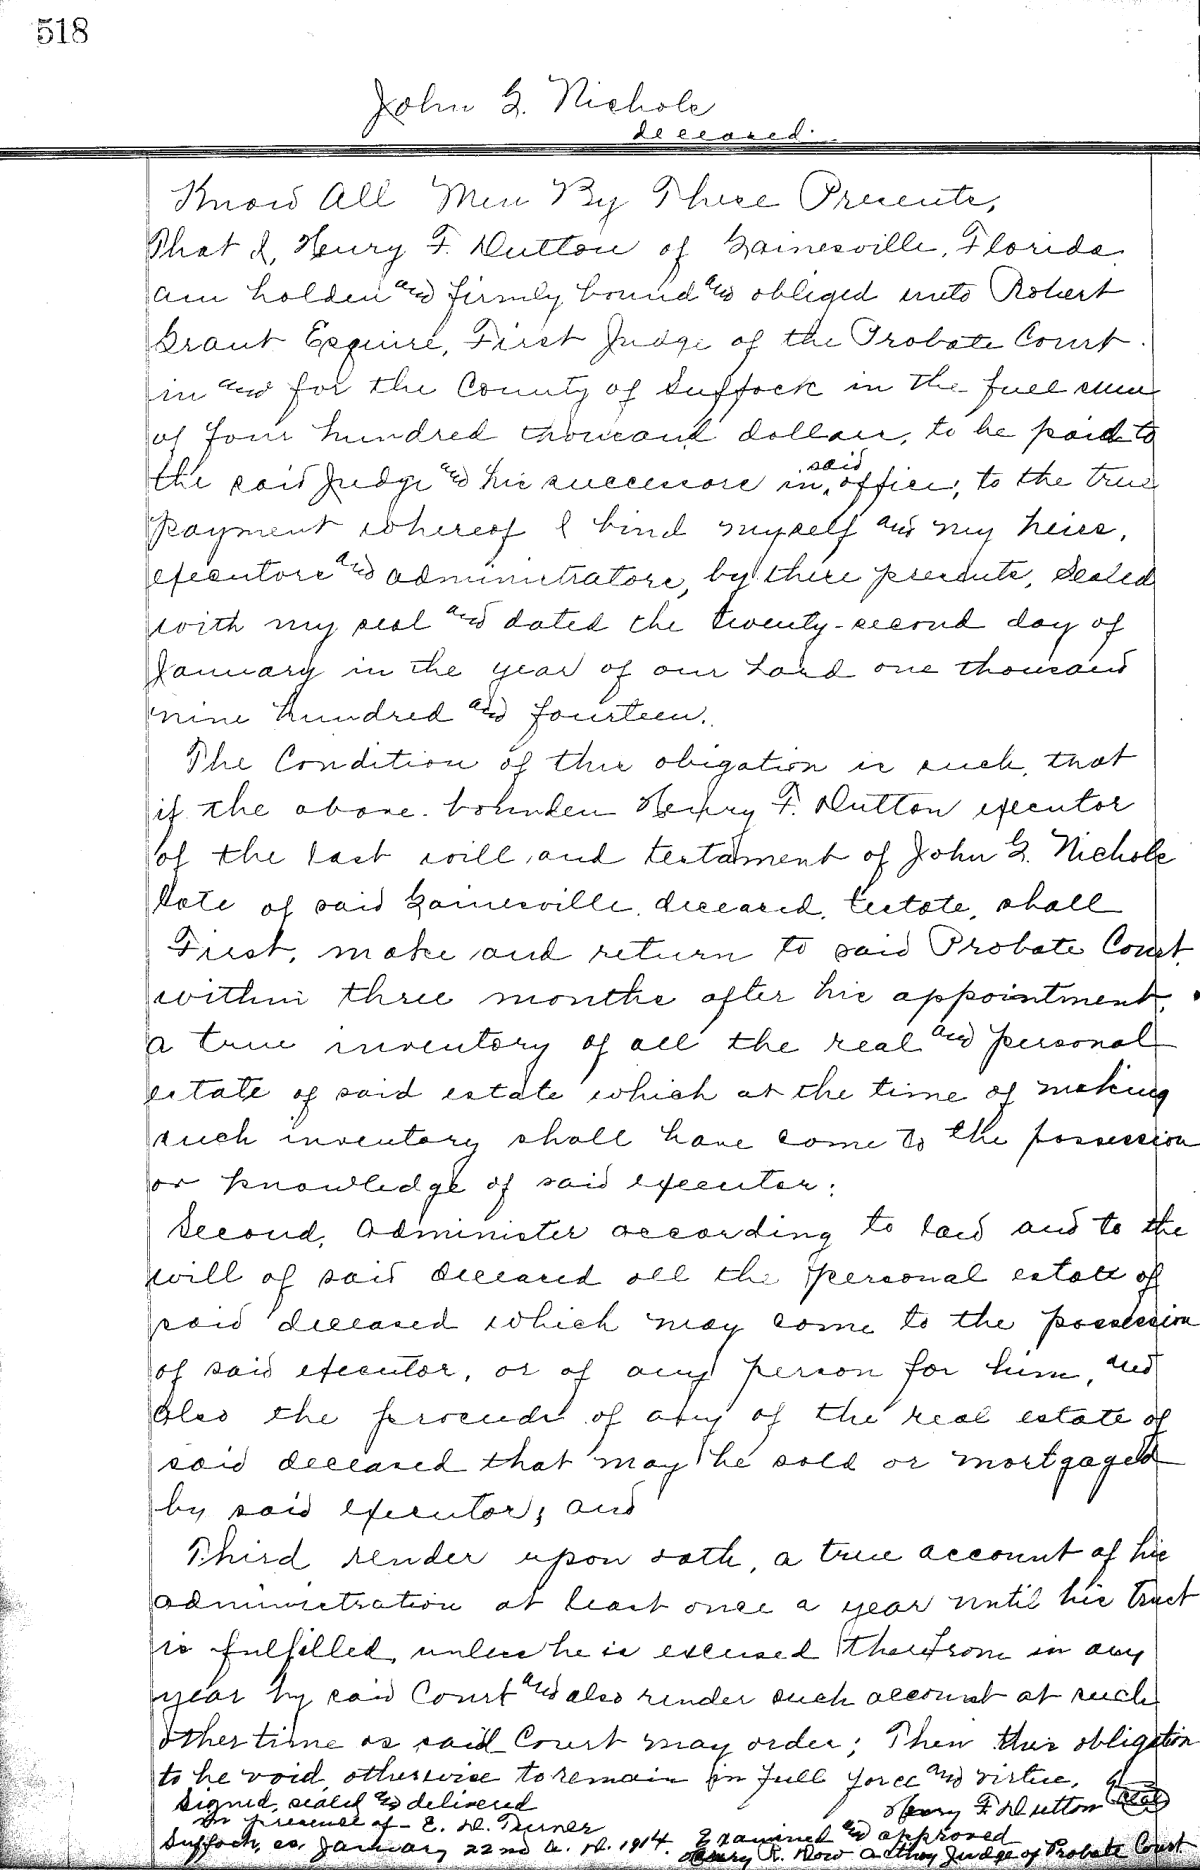 518
John G. Nichols
deceased.
Know All Men By These Presents,
That I, Henry F. Dutton of Gainesville, Florida
am holden and firmly bound and obliged unto Robert
Grant Esquire, First Judge of the Probate Court
in and for the County of Suffock in the full sum
of four hundred thousand dollars, to be paid to
the said Judge and his successors in said office, to the true
payment whereof I bind myself and my heirs,
executors and administrators, by these presents, Sealed
with my seal and dated the twenty-second day of
January in the year of our Lord one thousand
nine hundred and fourteen.
The Condition of this obigation is such, that
if the above-bounden Henry F. Dutton executor
of the last will and testament of John G. Nichols
late of said Gainesville, deceased, testate, shall
First, make and return to said Probate Court
within three months after his appointment,
a true inventory of all the real and personal
estate of said estate which at the time of making
such inventory shall have come to the possession
or knowledge of said executor:
Second, Administer according to law and to the
will of said deceased all the personal estate of
said deceased which may come to the possession
of said executor, or of any person for him, and
also the proceeds of any of the real estate of
said deceased that may be sold or mortgaged
by said executor; and
Third render upon oath, a true account of his
administration at least once a year until his trust
is fulfilled, unless he is excused therefrom in any
year by said Court and also render such account at such
other time as said Court may order; Then this obligation
to be void, otherwise to remain in full force and virtue.
Signed, sealed and delivered
Henry F. Dutton (Seal)
in presence of- E. D. Turner
Examined and approved
Suffock, ss. January 22nd A. D. 1914.
R. Dow acting Judge of Probate Court